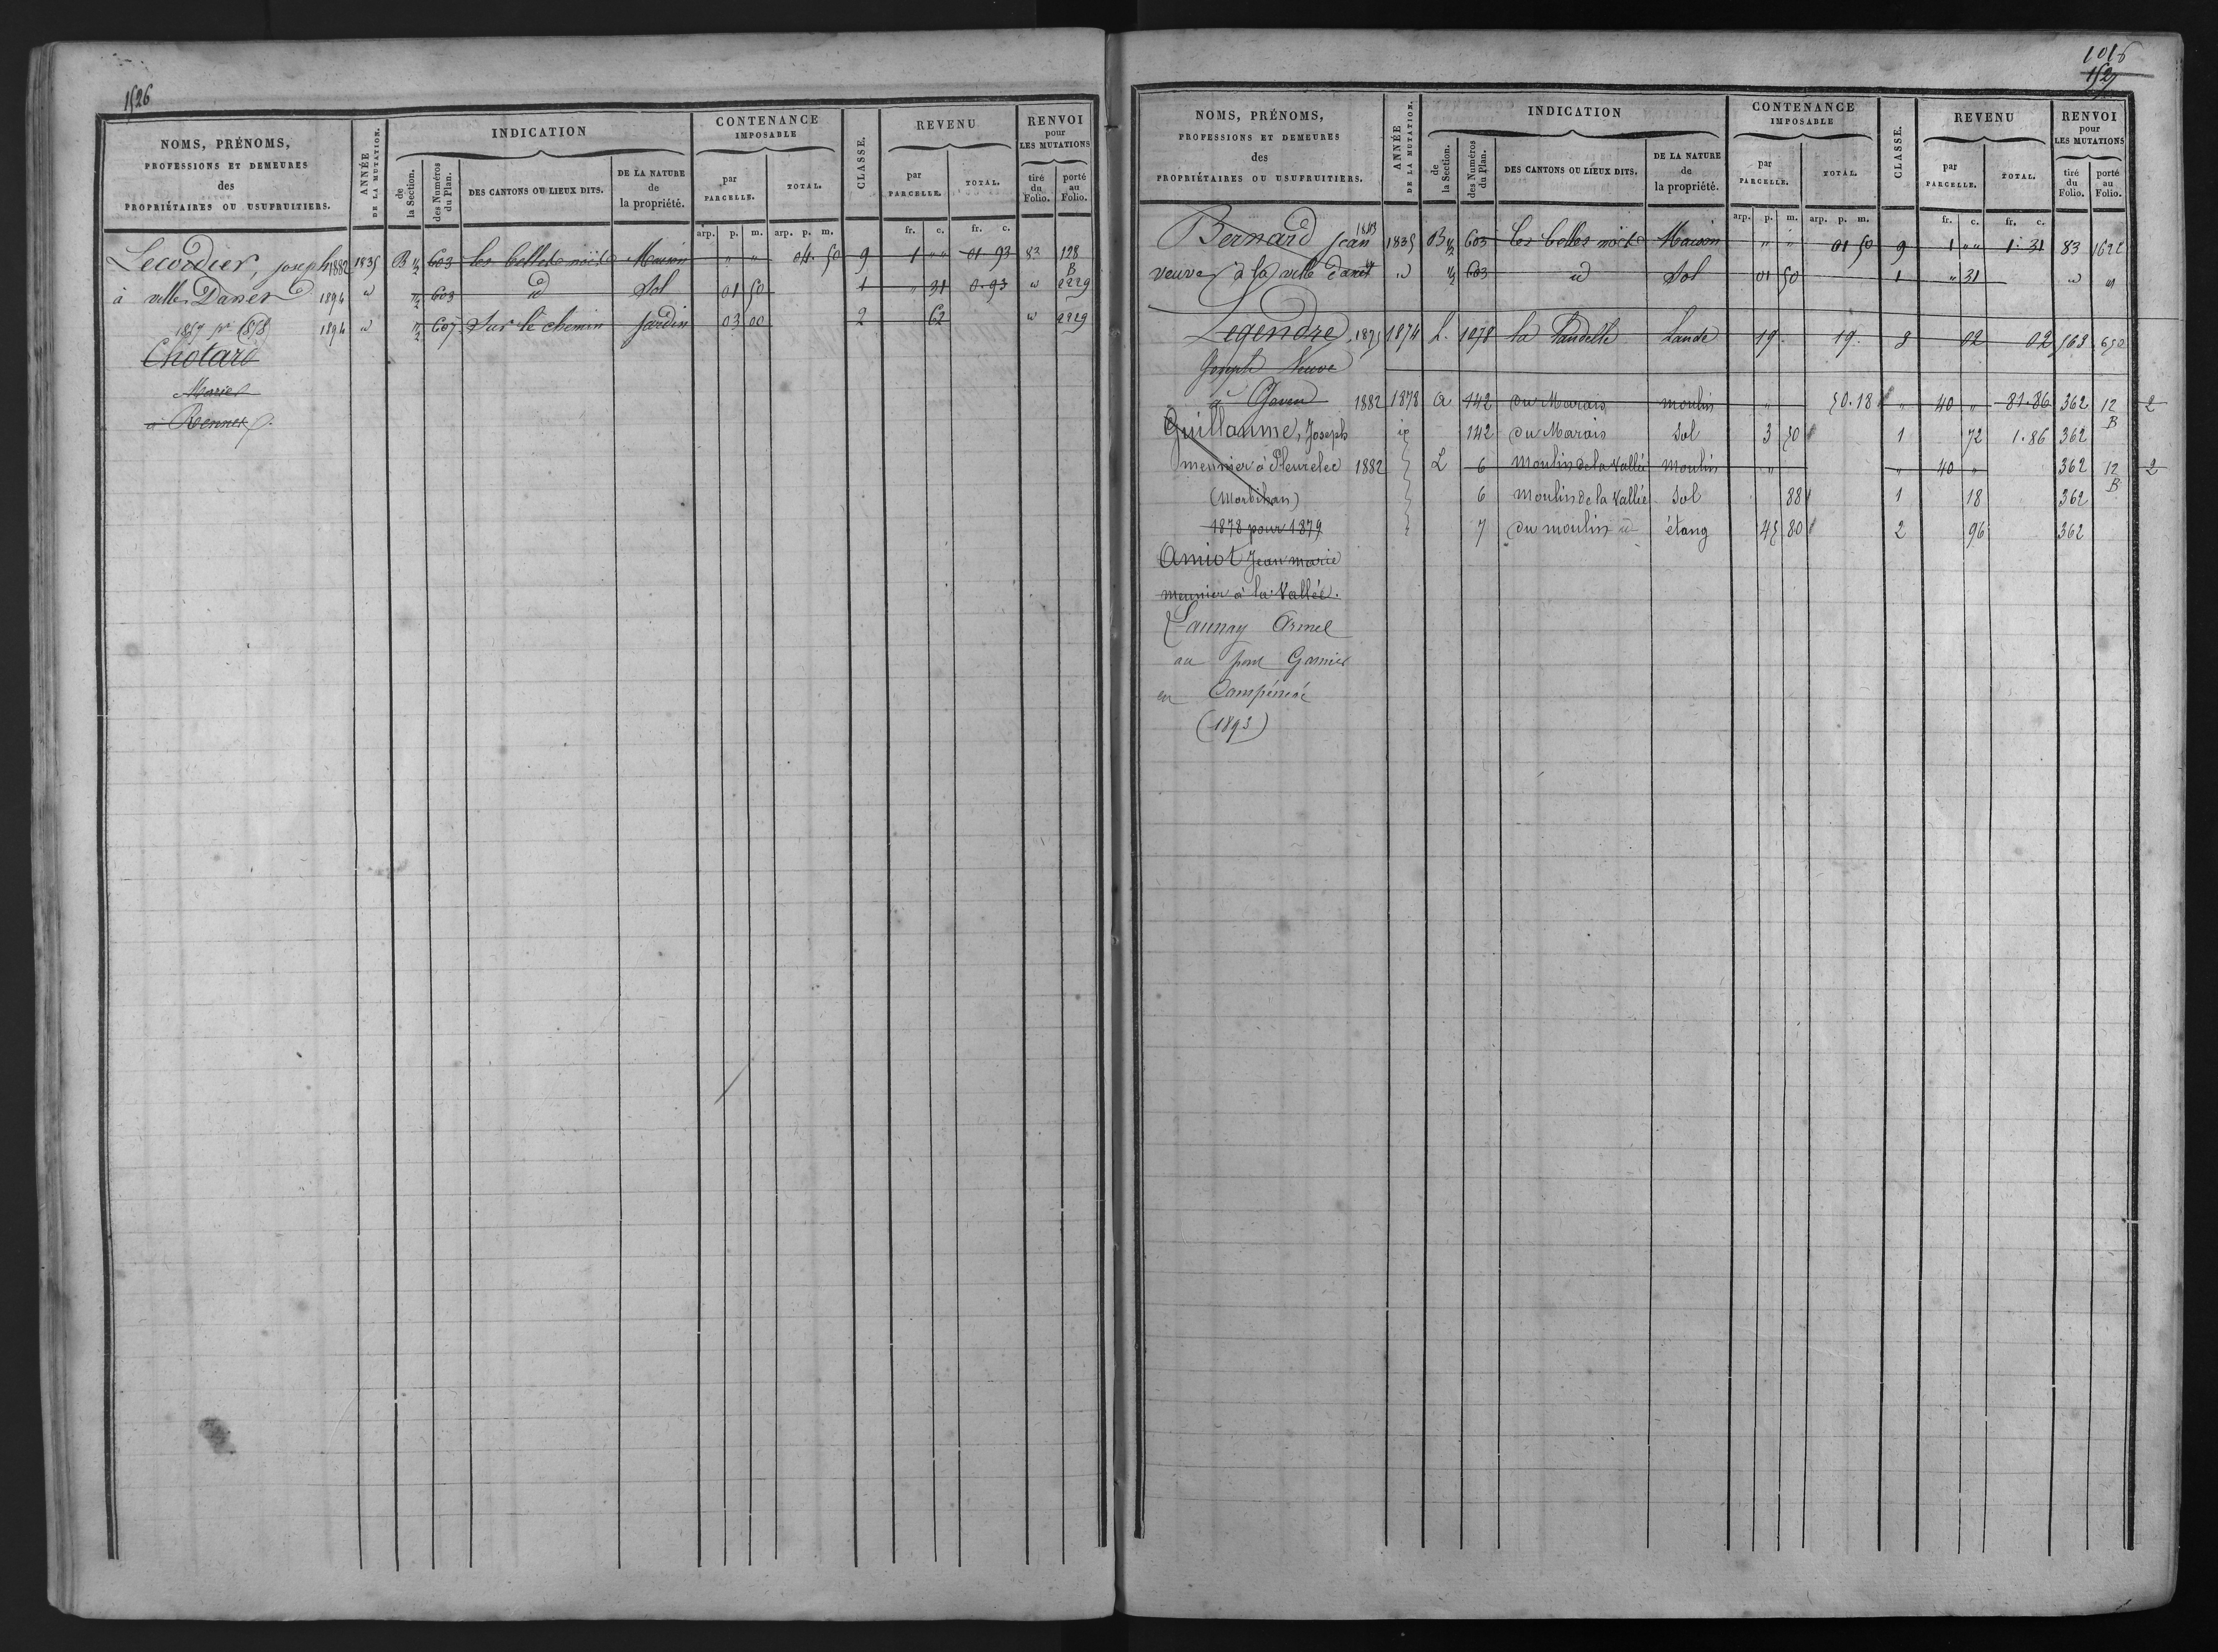 1526
NOMS, PRÉNOMS,
PROFESSIONS ET DEMEURES
des
PROPRIÉTAIRES OU USUFRUITIERS.
ANNÉE
DE LA MUTATION.
INDICATION
de
la Section.
des Numéros
du Plan.
DES CANTONS OU LIEUX DITS.
DE LA NATURE
de
la propriété.
CONTENANCE
IMPOSABLE
par
PARCELLE.
TOTAL.
CLASSE.
REVENU
par
PARCELLE.
TOTAL.
RENVOI
pour
LES MUTATIONS
tiré
du
Folio.
porté
au
Folio.
arp. p. m. arp. p. m. fr. c. fr. c.
Lecordier, joseph 1882 1835 B 1/2 603 les belles noës Maison " " 04. 50 9 1 " " 01 93 83 128
B
à ville Danet 1894 id 1/2 603 id Sol 01 50 1 " 31 0.93 id 2229
1857 pr (858) 1894 id 1/2 607 Sur le chemin Jardin 03 00 2 62 id 2229
Chotard
Marie
à Rennes
1016
1527
NOMS, PRÉNOMS,
PROFESSIONS ET DEMEURES
des
PROPRIÉTAIRES OU USUFRUITIERS.
ANNÉE
DE LA MUTATION.
INDICATION
de
la Section.
des Numéros
du Plan.
DES CANTONS OU LIEUX DITS.
DE LA NATURE
de
la propriété.
CONTENANCE
IMPOSABLE
par
PARCELLE.
TOTAL.
CLASSE.
REVENU
par
PARCELLE.
TOTAL.
RENVOI
pour
LES MUTATIONS
tiré
du
Folio.
porté
au
Folio.
arp. p. m. arp. p. m. fr. c. fr. c.
Bernard jean 1835 B 1/2 603 les belles noës Maison " " 01 50 9 1 " " 1. 31 83 1622
veuve à la ville danet id 1/2 603 id Sol 01 50 1 " 31 id id
Legendre 1875 1874 L. 1078 la Landelle Lande 19. 19. 8 02 02 563 650
Joseph Veuve
à 1882 1878 A 142 du Marais moulin " 50.18 " 40 " 81.86 362 12 2
B
Guillaume, Joseph 142 du Marais Sol 3 50 1 72 1.86 362
meunier à Plumelec 1882 L 6 Moulin de la Vallée moulin " " 40 " 362 12 2
B
(Morbihan) 6 moulin de la Vallée Sol 88 1 18 362
1878 pour 1879 7 du moulin id étang 45 80 2 96 362
Amiot Jean marie
meunier à la Vallée.
Launay Armel
au pont Garnier
en Campénéac
(1893)